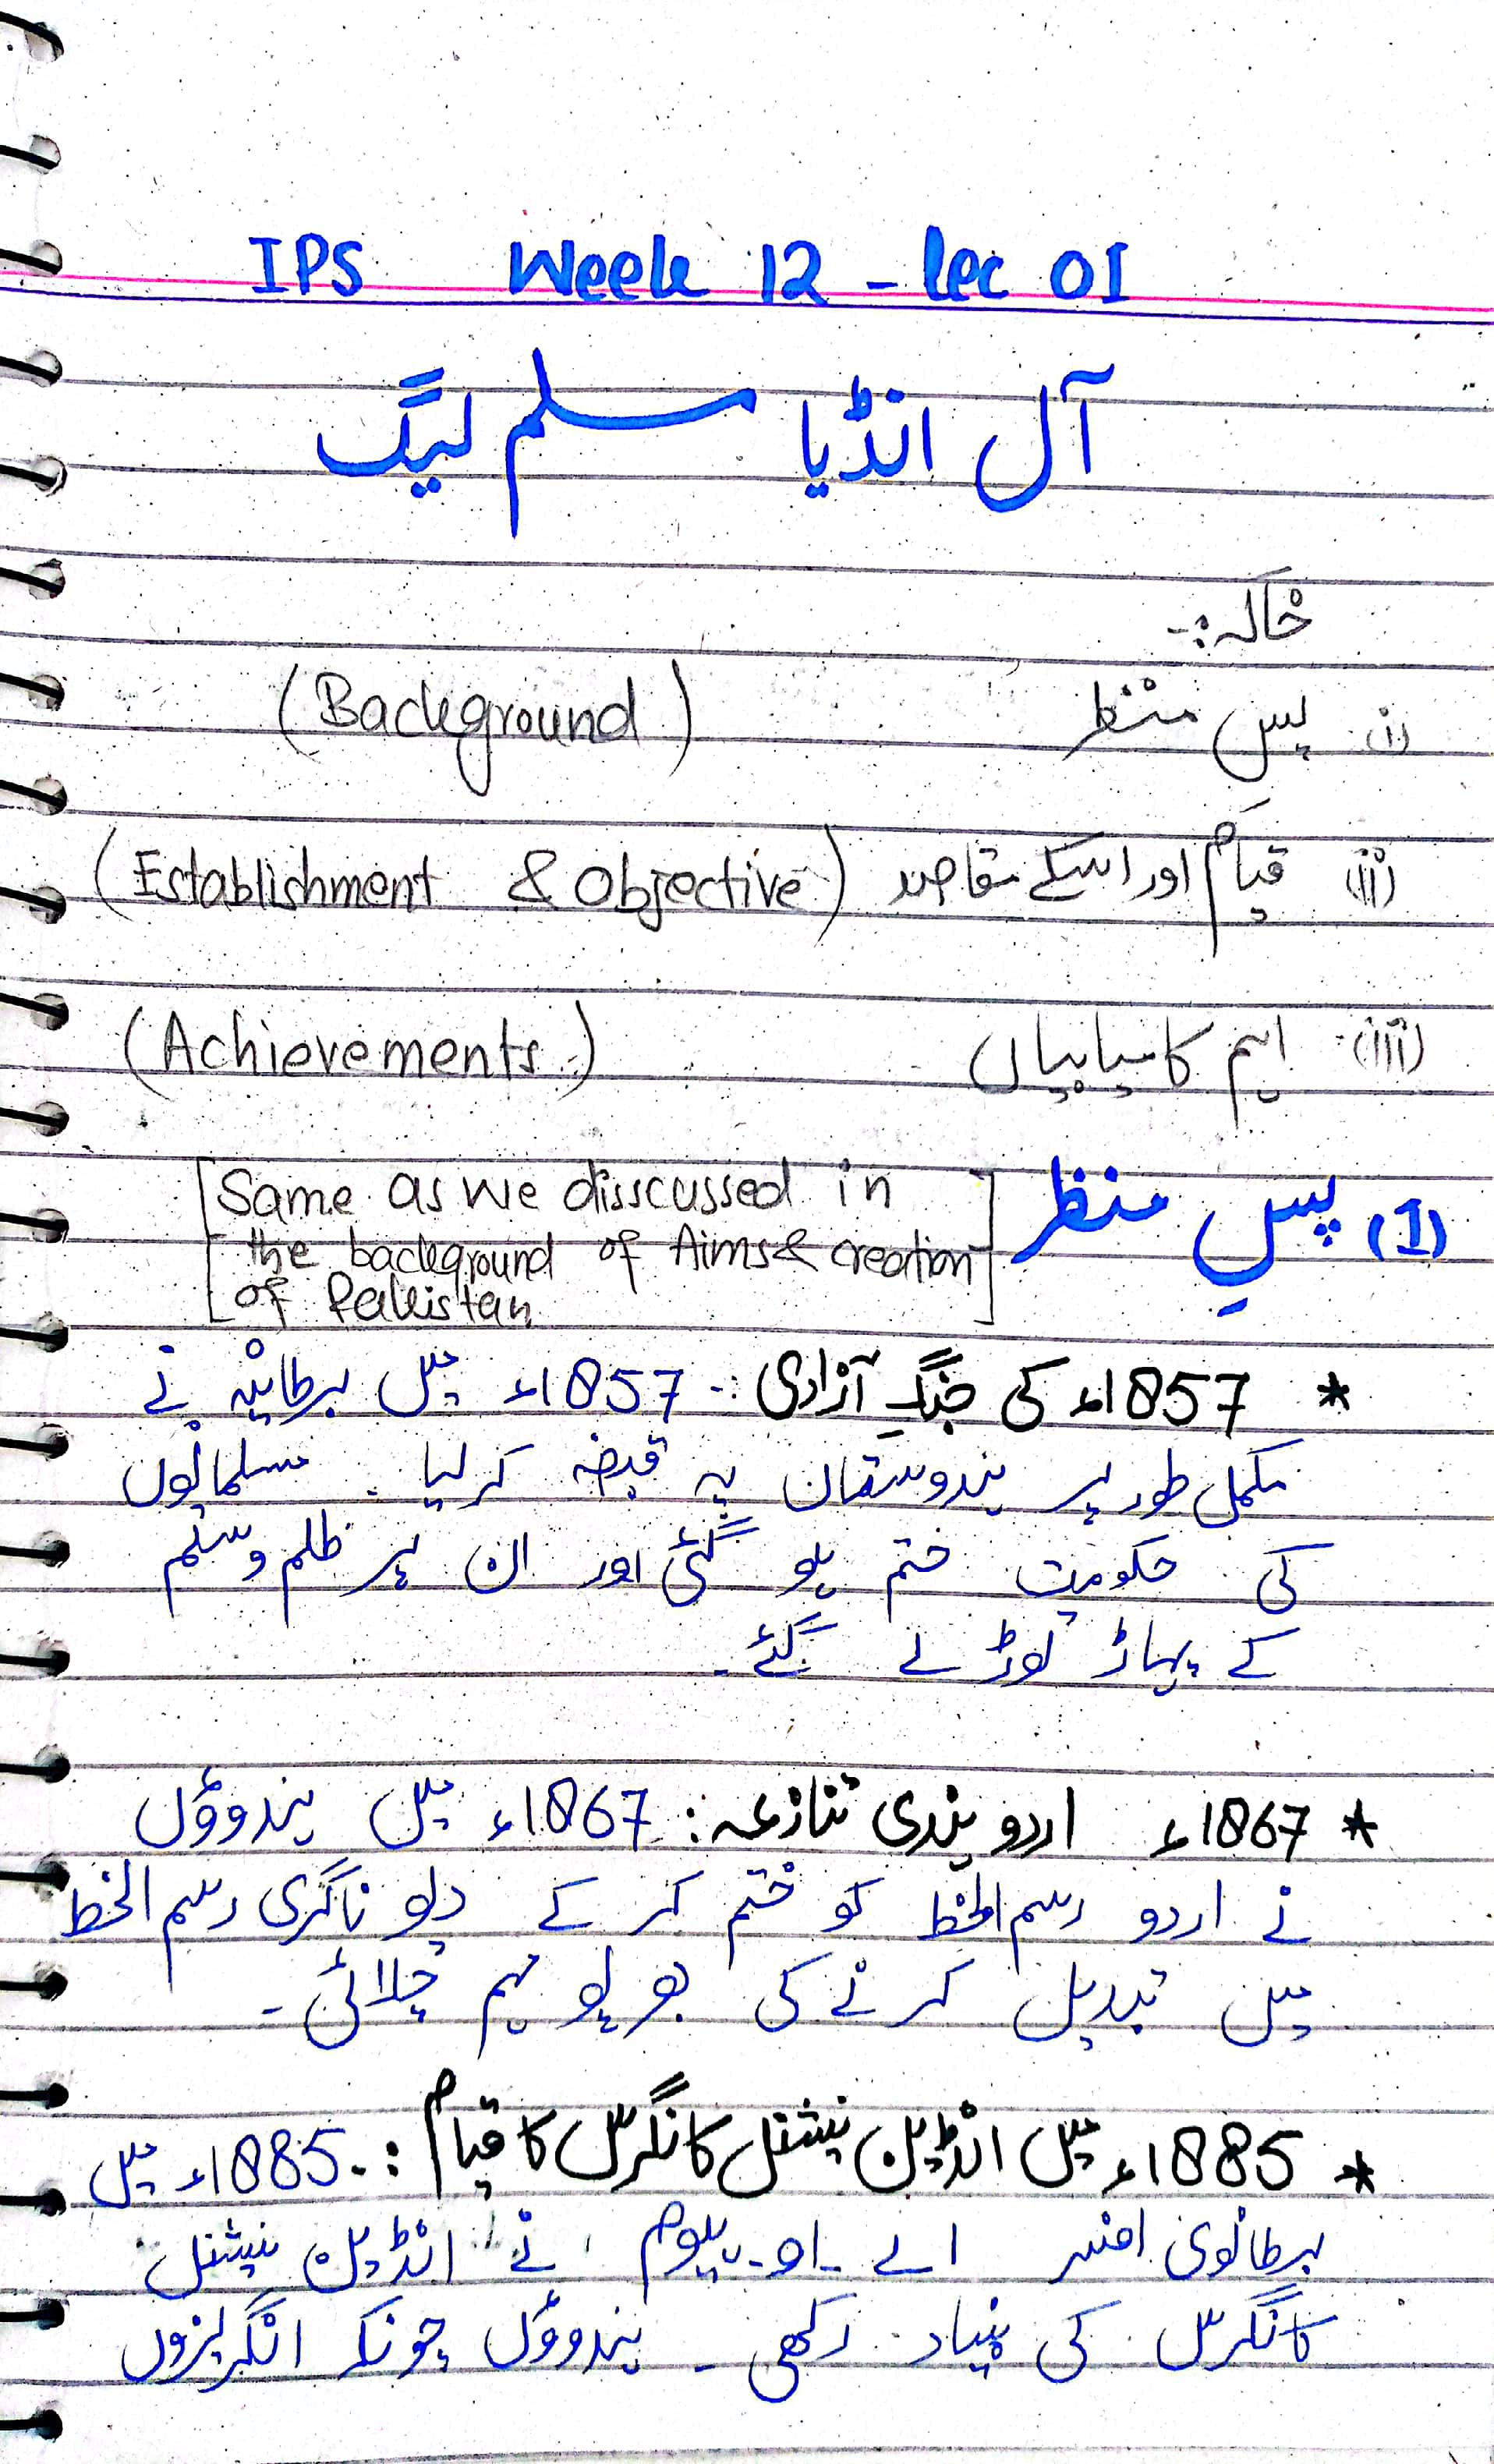 IPS Week 12 - lec 01
آل انڈیا مسلم لیگ
خاکہ:-
(i) پس منظر (Background)
(ii) قیام اور اسکے مقاصد (Establishment & Objective)
(iii) اہم کامیابیاں (Achievements)
(1) پسِ منظر [Same as we disscussed in
the background of Aims & creation
of Pakistan]
* 1857ء کی جنگِ آزادی :- 1857ء میں برطانیہ نے
مکمل طور پر ہندوستان پہ قبضہ کر لیا۔ مسلمانوں
کی حکومت ختم ہو گئی اور ان پر ظلم و ستم
کے پہاڑ توڑے گئے۔
* 1867ء اردو ہندی تنازعہ: 1867ء میں ہندوؤں
نے اردو رسم الخط کو ختم کر کے دیو ناگری رسم الخط
میں تبدیل کرنے کی بھرپور مہم چلائی۔
* 1885ء میں انڈین نیشنل کانگرس کا قیام :- 1885ء میں
برطانوی افسر اے۔او۔ہیوم نے انڈین نیشنل
کانگرس کی بنیاد رکھی۔ ہندوؤں چونکہ انگریزوں